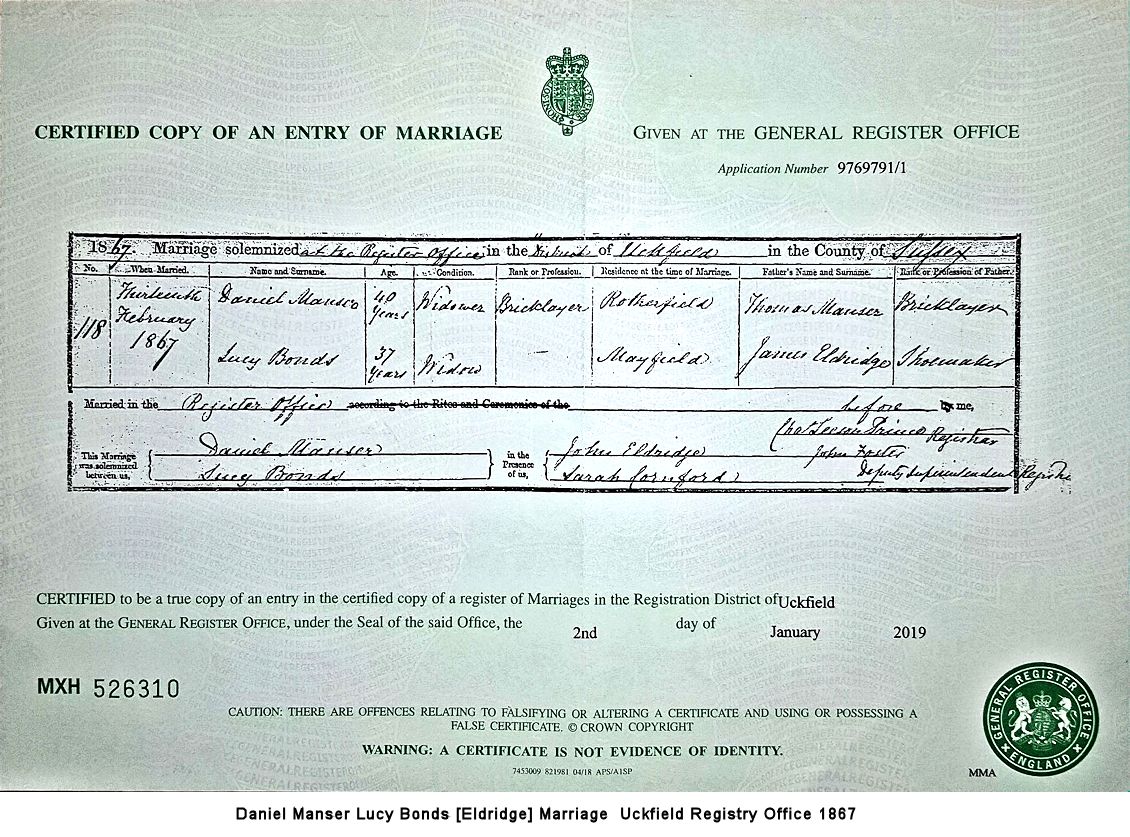 CERTIFIED COPY OF AN ENTRY OF MARRIAGE
GIVEN AT THE GENERAL REGISTER OFFICE
Application Number 9769791/1
1867. Marriage solemnized at the Register Office in the District of Uckfield in the County of Sussex
No. When Married. Name and Surname. Age. Condition. Rank or Profession. Residence at the time of Marriage. Father's Name and Surname. Rank or Profession of Father.
118 Thirteenth February 1867 Daniel Manser 40 Years Widower Bricklayer Rotherfield Thomas Manser Bricklayer
Lucy Bonds 37 Years Widow — Mayfield James Eldridge Shoemaker
Married in the Register Office according to the Rites and Ceremonies of the before by me,
This Marriage was solemnized between us, Daniel Manser Lucy Bonds in the Presence of us, John Eldridge Sarah Cornford
Prince Registrar
John Foster
Deputy Superintendent Registrar
CERTIFIED to be a true copy of an entry in the certified copy of a register of Marriages in the Registration District of Uckfield
Given at the GENERAL REGISTER OFFICE, under the Seal of the said Office, the 2nd day of January 2019
MXH 526310
CAUTION: THERE ARE OFFENCES RELATING TO FALSIFYING OR ALTERING A CERTIFICATE AND USING OR POSSESSING A
FALSE CERTIFICATE. © CROWN COPYRIGHT
WARNING: A CERTIFICATE IS NOT EVIDENCE OF IDENTITY.
7453009 821981 04/18 APS/A1SP
MMA
GENERAL REGISTER OFFICE
ENGLAND
Daniel Manser Lucy Bonds [Eldridge] Marriage Uckfield Registry Office 1867